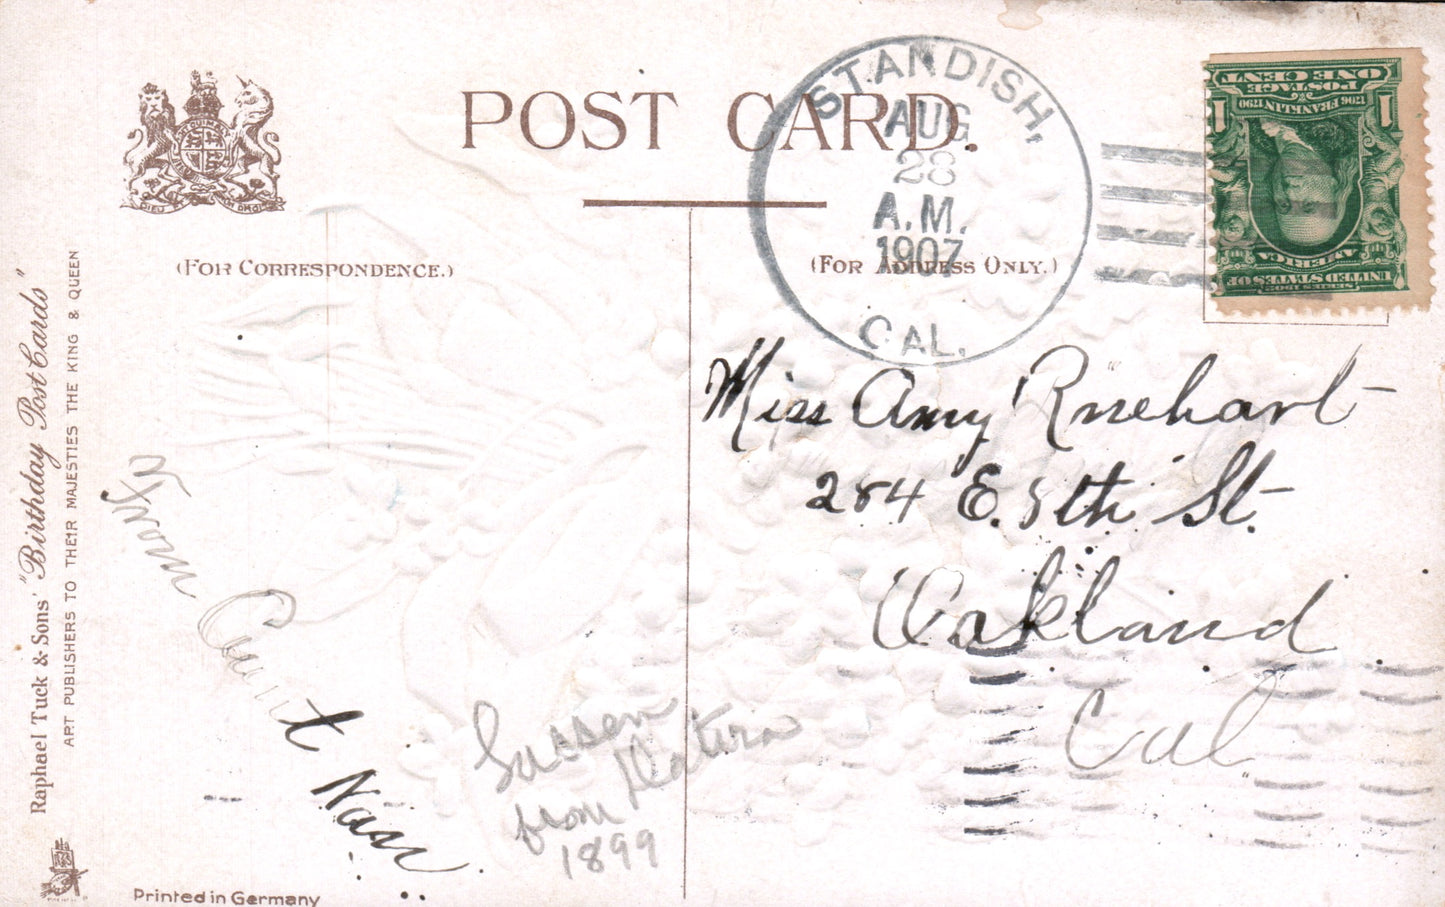 POST CARD.
(FOR CORRESPONDENCE.)
(FOR ADDRESS ONLY.)
STANDISH,
AUG
28
A.M.
1907
CAL.
ONE CENT
POSTAGE
1706 FRANKLIN 1790
1 1
AMERICA
UNITED STATES OF
SERIES 1902
DIEU ET MON DROIT
Raphael Tuck & Sons' "Birthday Post Cards"
ART PUBLISHERS TO THEIR MAJESTIES THE KING & QUEEN
Miss Amy Rinehart
284 E. 8th St.
Oakland
Cal
From Aunt Nan
Lassen
from
1899
Printed in Germany